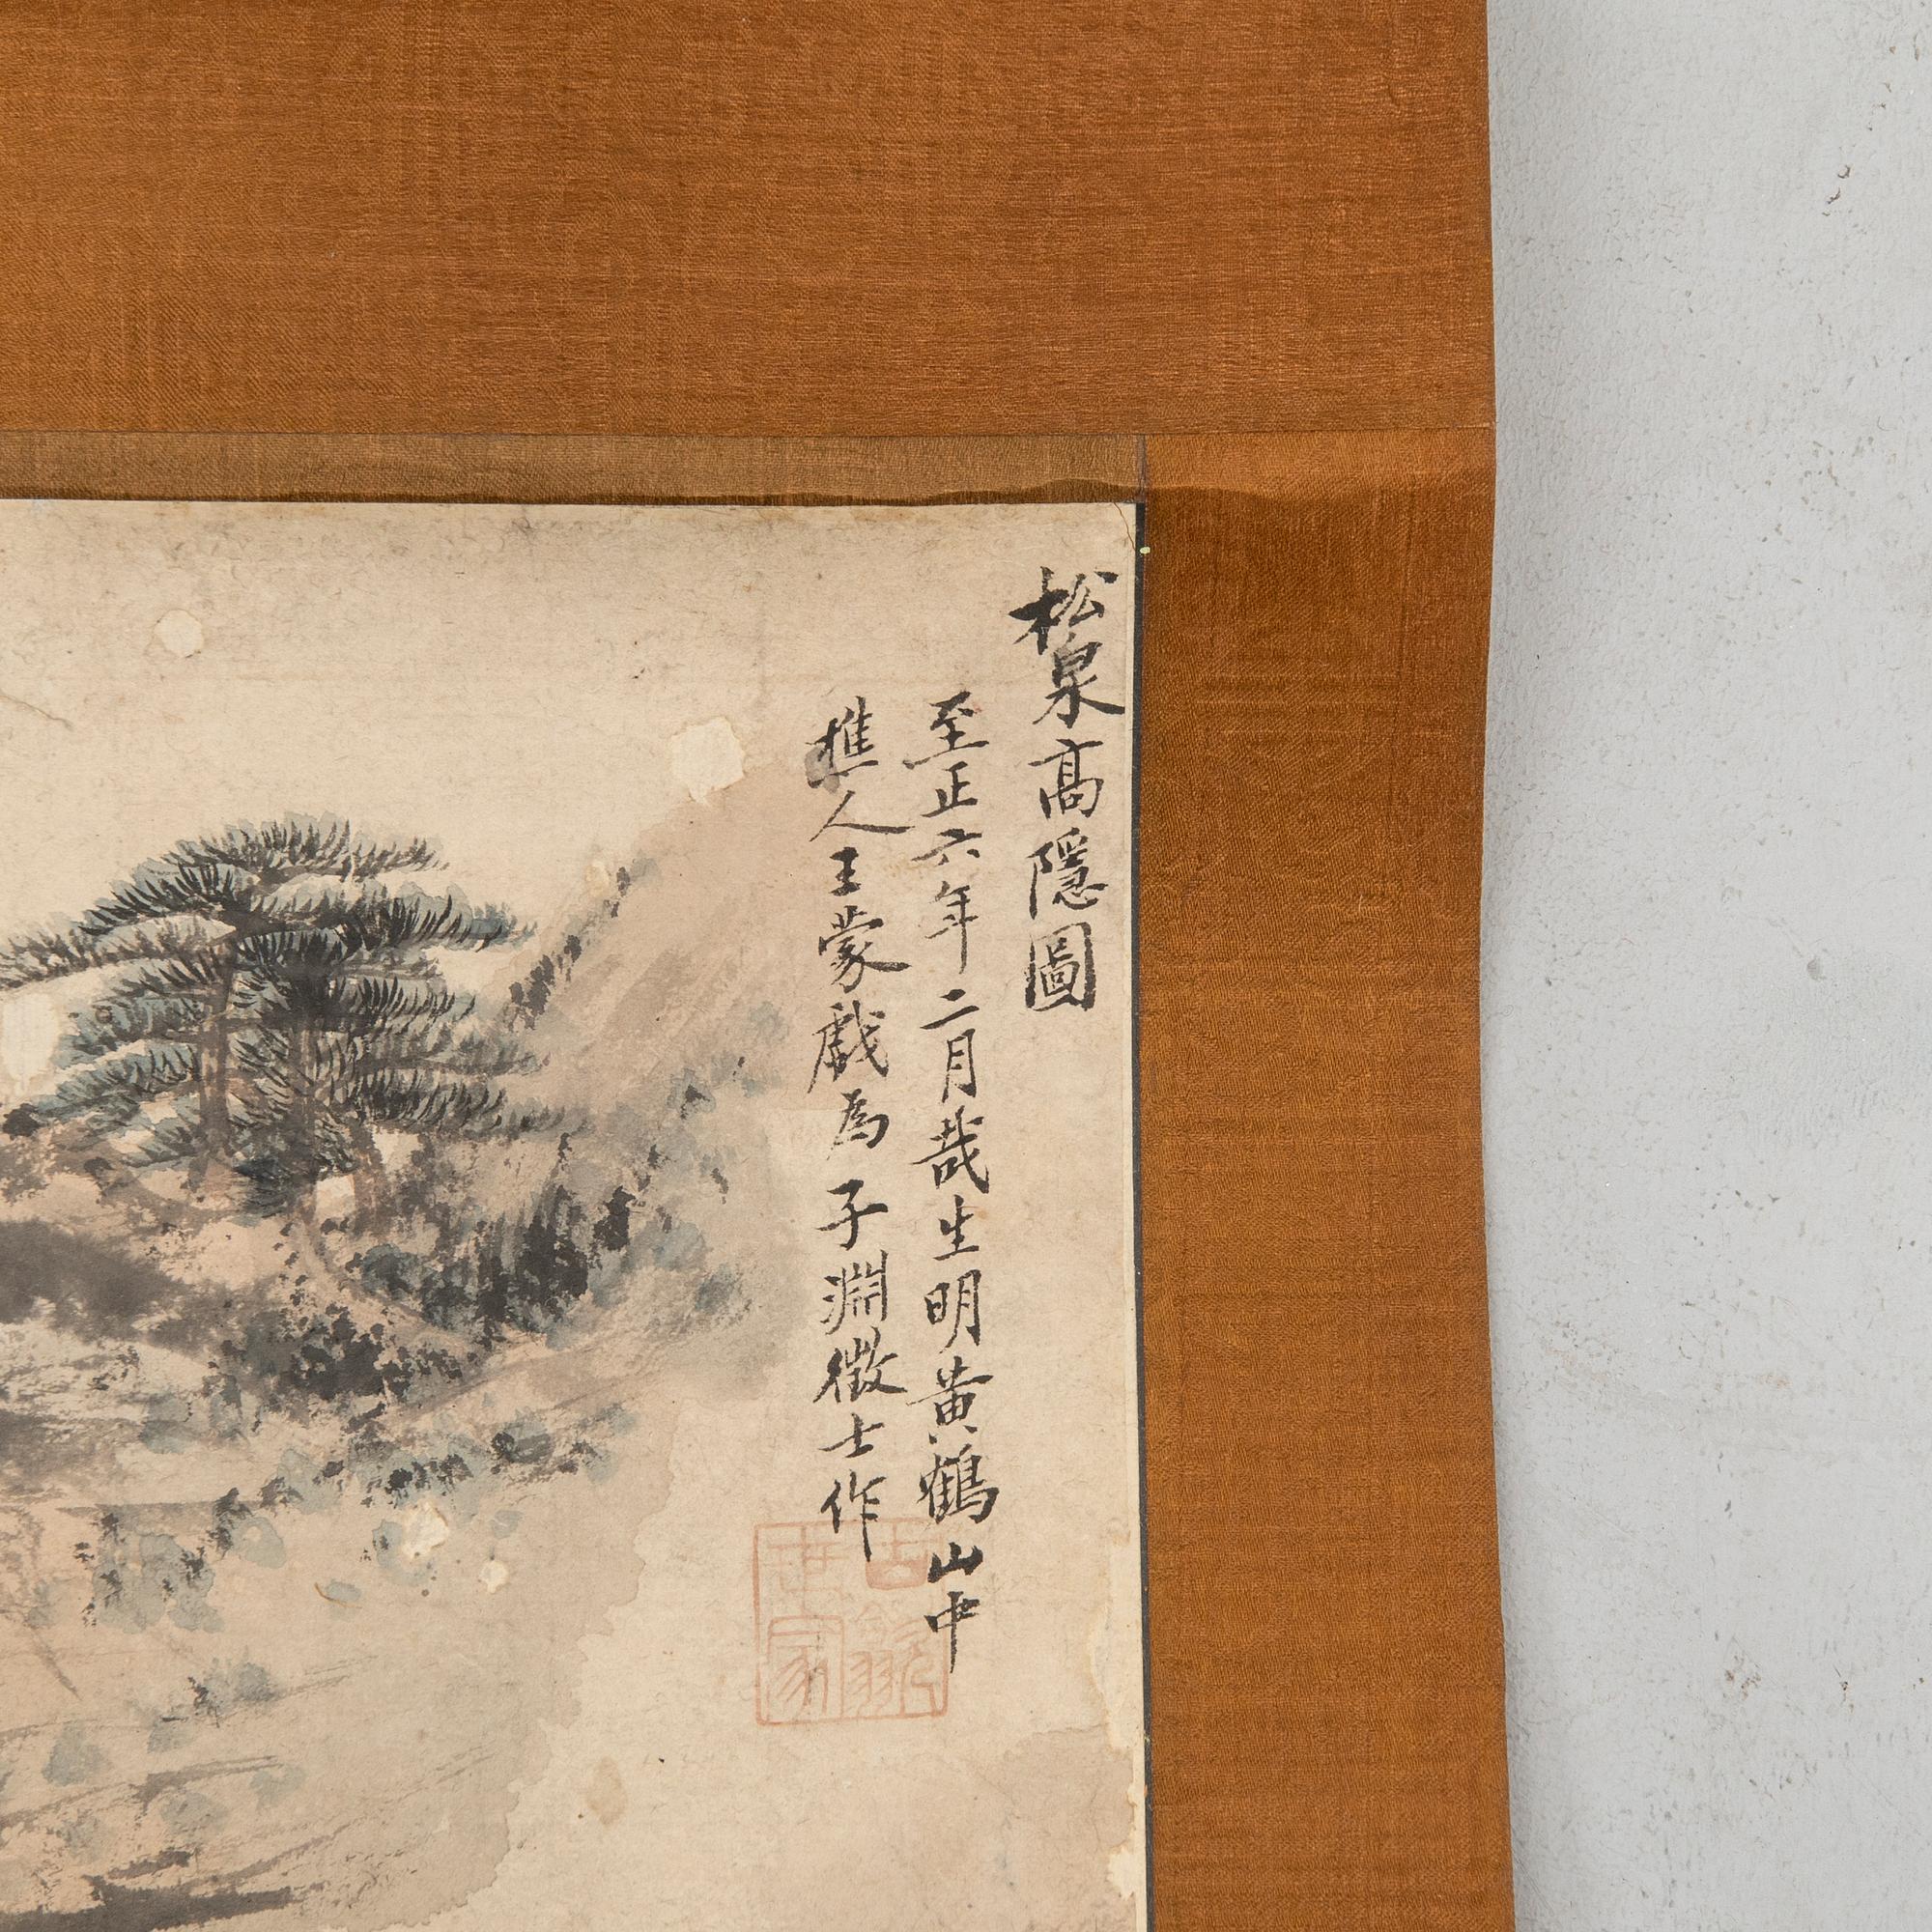 松泉高隱圖
至正六年二月哉生明黄鶴山中
樵人王蒙戲為子淵徵士作